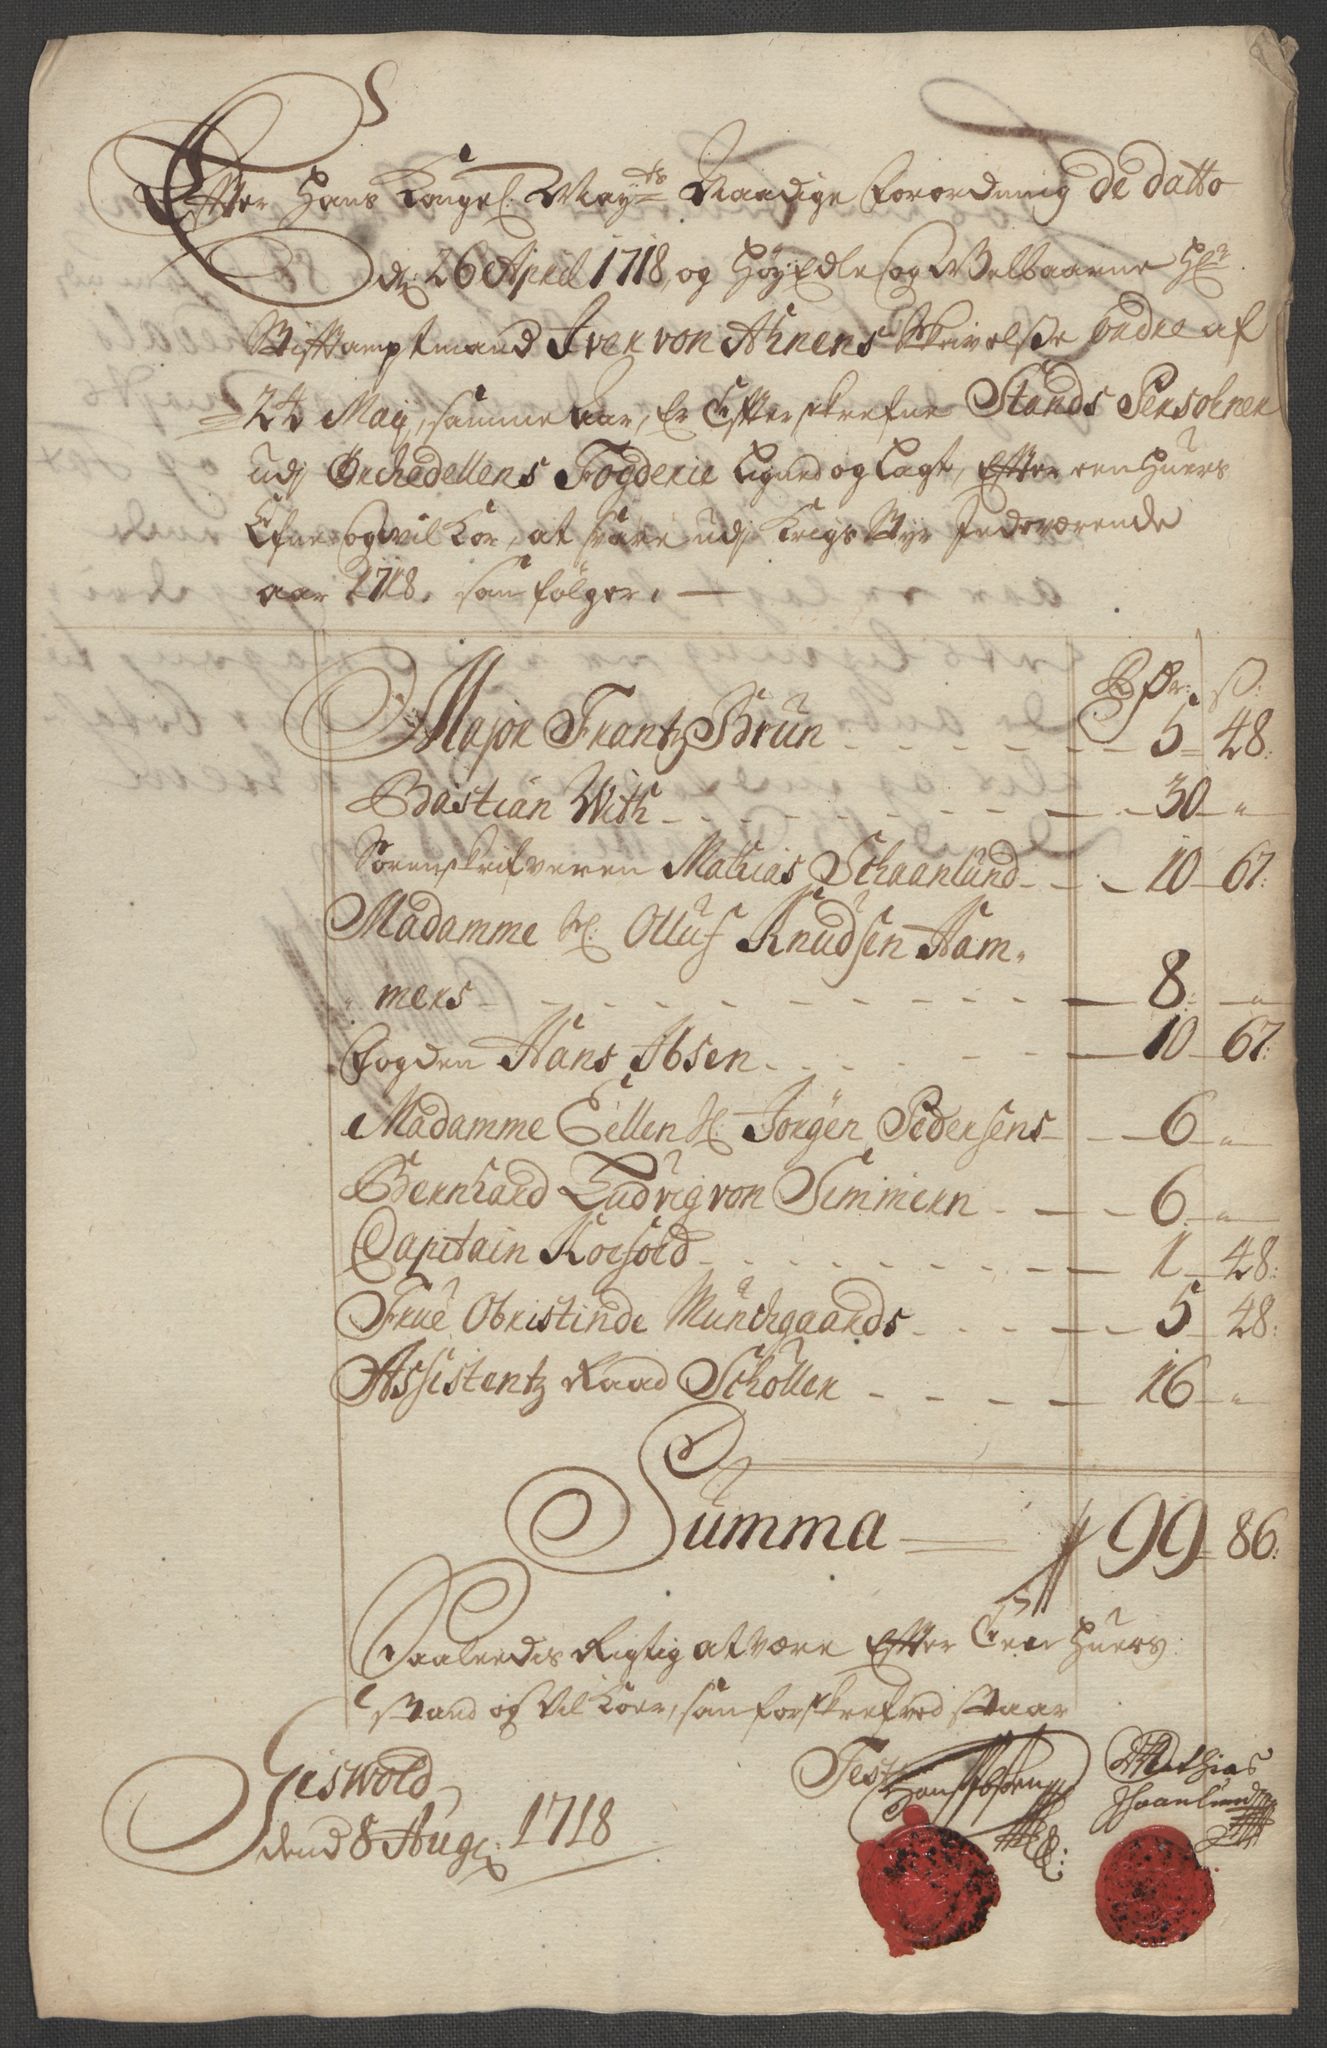 Efter Hans Kongel: Mayts Naadige Forordning de datto
d: 26 April 1718, og Høy Edle og Velbaarne Hr
Stiftamptmand Iver von Ahnens Skrivelse Ordre af
24 May, samme aar, Er Efterskrefne Stands Persohner
udj Orchedellens Fogderie Ligned og Lagt, Efter een huers
Efne og vilkor, at svare udj Krigs Styr Indeværende
aar 1718. som følger. —
Rdr: s:
Major Frantz Brun 5 48:
Bastian With 30 "
Sorenskrifveren Mathias Schaanlund 10 67:
Madamme Sl: Olluf Knudsen Ham-
mers 8: "
Fogden Hans Ibsen 10 67:
Madamme Eellen Sl: Jørgen Pedersens 6 "
Bernhard Ludvig von Simmern 6 "
Capitain Koefoed 1 48:
Frue Obristinde Munchgaards 5 48:
Assistentz Raad Schøller 16 "
Summa 99 86:
Saaleedis Rigtig at være Efter Een huers
Stand og Vilkoer, som forskrefved staar
Giswold Test:
dend 8 Aug: 1718
Hans Ibsen
Mathias
Schaanlund